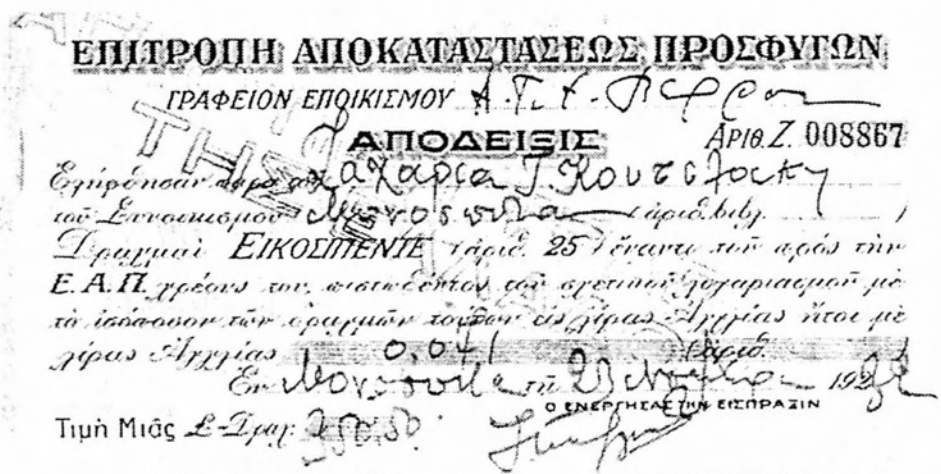 ΕΠΙΤΡΟΠΗ ΑΠΟΚΑΤΑΣΤΑΣΕΩΣ ΠΡΟΣΦΥΓΩΝ
ΓΡΑΦΕΙΟΝ ΕΠΟΙΚΙΣΜΟΥ
ΑΠΟΔΕΙΞΙΣ ΑΡΙΘ. Ζ. 008867
Ἐλήφθησαν παρὰ τοῦ Ζαχαρία Γ.
τοῦ Συνοικισμοῦ (ἀριθ. βιβλ. )
Δραχμαὶ ΕΙΚΟΣΙΠΕΝΤΕ (ἀριθ. 25) ἔναντι τοῦ πρὸς τὴν
Ε.Α.Π. χρέους του, πιστωθέντος τοῦ σχετικοῦ λογαριασμοῦ μὲ
τὸ ἰσόποσον τῶν δραχμῶν τούτων εἰς λίρας Ἀγγλίας ἤτοι μὲ
λίρας Ἀγγλίας 0.041 (ἀριθ. )
Ἐν τῇ 192
Ο ΕΝΕΡΓΗΣΑΣ ΤΗΝ ΕΙΣΠΡΑΞΙΝ
Τιμὴ Μιᾶς £-Δραχ: